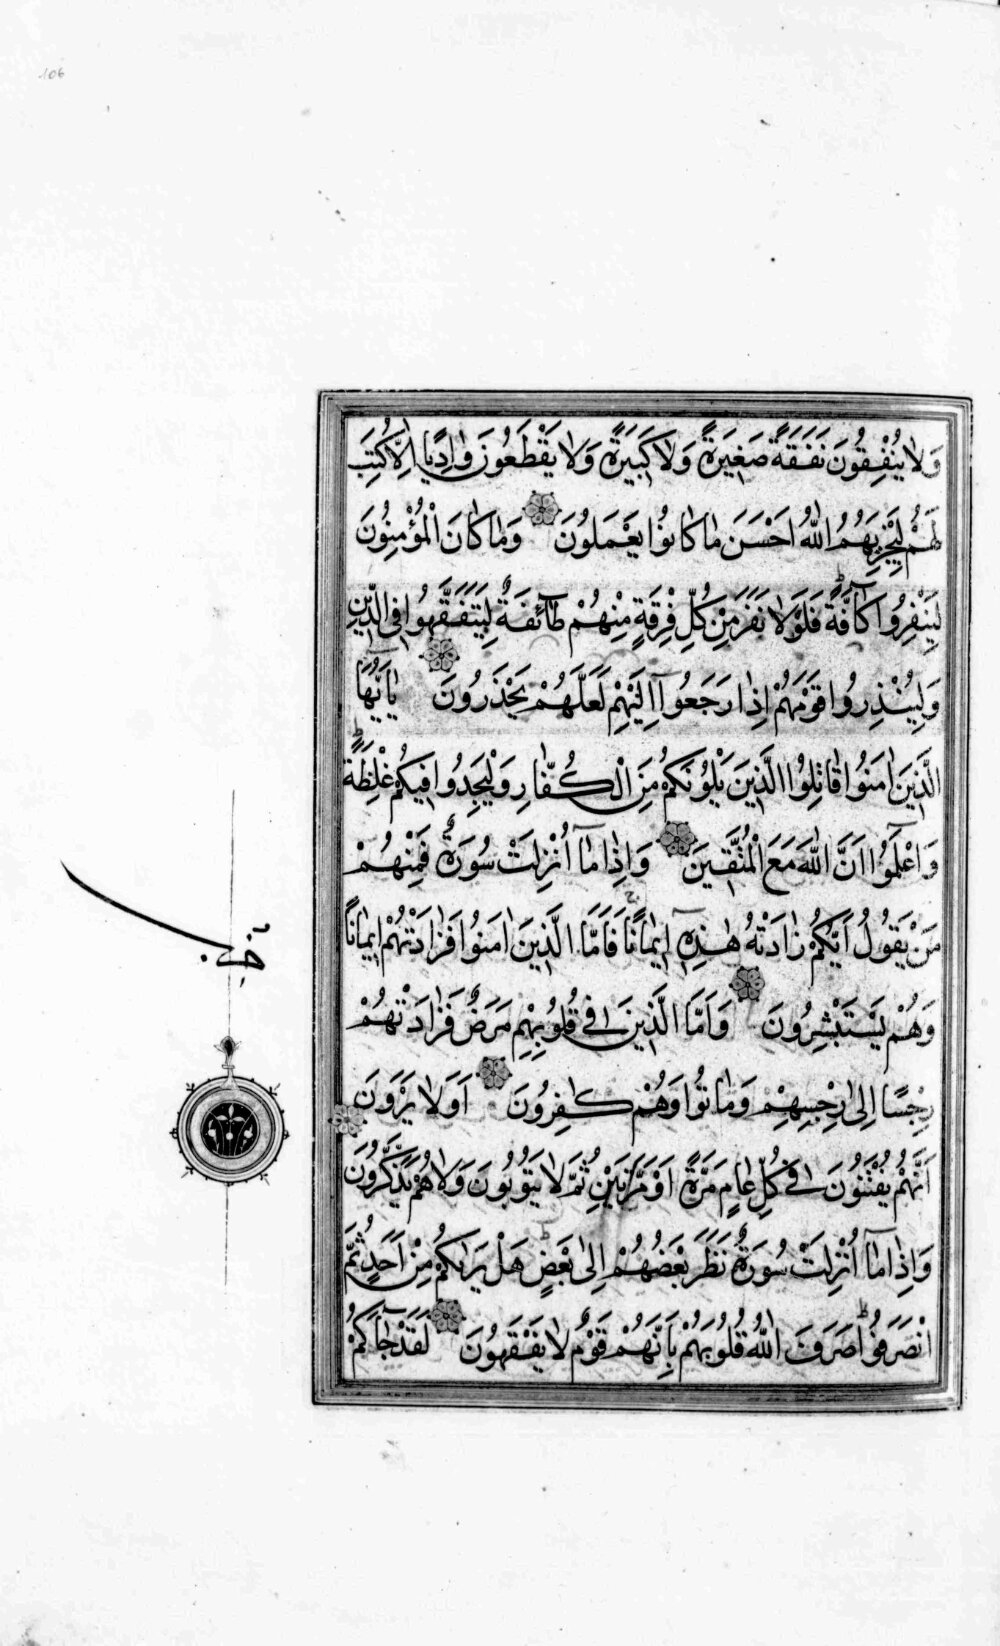 106
وَلَا يُنْفِقُونَ نَفَقَةً صَغِيرَةً وَلَا كَبِيرَةً وَلَا يَقْطَعُونَ وَادِيًا اِلَّا كُتِبَ
لَهُمْ لِيَجْزِيَهُمُ اللّٰهُ اَحْسَنَ مَا كَانُوا يَعْمَلُونَ وَمَا كَانَ الْمُؤْمِنُونَ
لِيَنْفِرُوا كَآفَّةً فَلَوْلَا نَفَرَ مِنْ كُلِّ فِرْقَةٍ مِنْهُمْ طَآئِفَةٌ لِيَتَفَقَّهُوا فِي الدِّينِ
وَلِيُنْذِرُوا قَوْمَهُمْ اِذَا رَجَعُوا اِلَيْهِمْ لَعَلَّهُمْ يَحْذَرُونَ يٰٓاَيُّهَا
الَّذِينَ اٰمَنُوا قَاتِلُوا الَّذِينَ يَلُونَكُمْ مِنَ الْكُفَّارِ وَلْيَجِدُوا فِيكُمْ غِلْظَةً
وَاعْلَمُوا اَنَّ اللّٰهَ مَعَ الْمُتَّقِينَ وَاِذَا مَآ اُنْزِلَتْ سُورَةٌ فَمِنْهُمْ
مَنْ يَقُولُ اَيُّكُمْ زَادَتْهُ هٰذِهِ اِيمَانًا فَاَمَّا الَّذِينَ اٰمَنُوا فَزَادَتْهُمْ اِيمَانًا
وَهُمْ يَسْتَبْشِرُونَ وَاَمَّا الَّذِينَ فِي قُلُوبِهِمْ مَرَضٌ فَزَادَتْهُمْ
رِجْسًا اِلٰى رِجْسِهِمْ وَمَاتُوا وَهُمْ كٰفِرُونَ اَوَلَا يَرَوْنَ
اَنَّهُمْ يُفْتَنُونَ فِي كُلِّ عَامٍ مَرَّةً اَوْ مَرَّتَيْنِ ثُمَّ لَا يَتُوبُونَ وَلَا هُمْ يَذَّكَّرُونَ
وَاِذَا مَآ اُنْزِلَتْ سُورَةٌ نَظَرَ بَعْضُهُمْ اِلٰى بَعْضٍ هَلْ يَرٰىكُمْ مِنْ اَحَدٍ ثُمَّ
انْصَرَفُوا صَرَفَ اللّٰهُ قُلُوبَهُمْ بِاَنَّهُمْ قَوْمٌ لَا يَفْقَهُونَ لَقَدْ جَآءَكُمْ
حزب